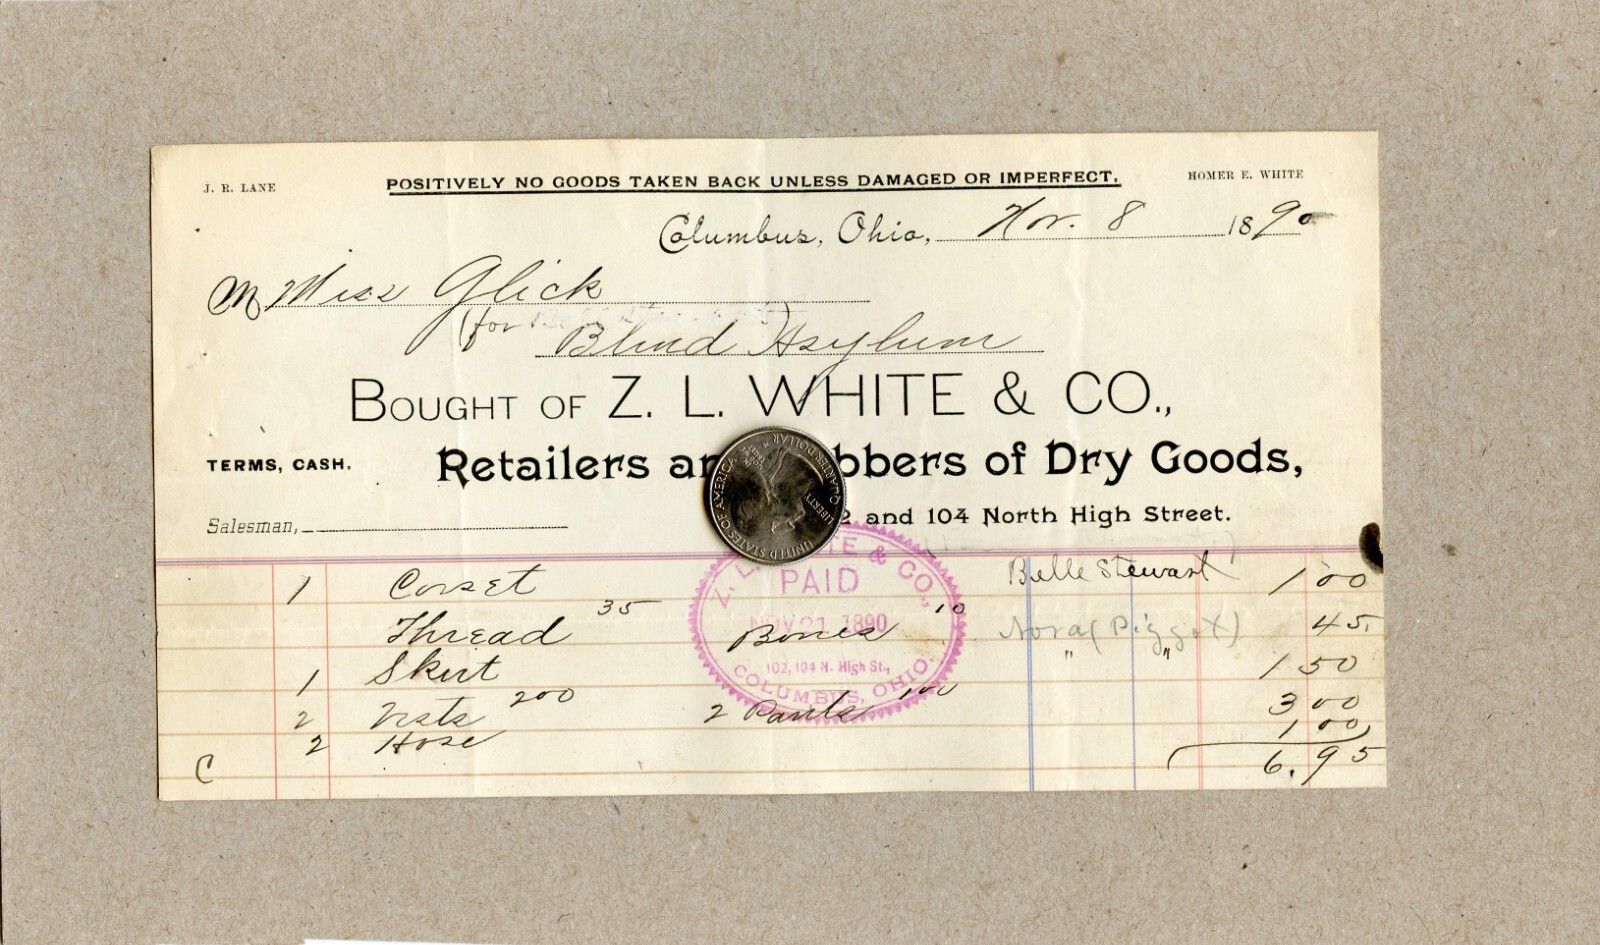 J. R. LANE POSITIVELY NO GOODS TAKEN BACK UNLESS DAMAGED OR IMPERFECT. HOMER E. WHITE
Columbus, Ohio, Nov. 8 1890
M Miss Glick
(for
Blind Asylum
BOUGHT OF Z. L. WHITE & CO.,
TERMS, CASH. Retailers an bbers of Dry Goods,
Salesman, 2 and 104 North High Street.
1 Corset Belle Stewart 1 00
Thread 35 Bones 10 Nora (Piggot) 45
1 Skirt " " 1 50
2 Vests 200 2 Pants 100 3 00
2 Hose 1 00
C 6.95
Z. L. WHITE & CO.,
PAID
NOV 21 1890
102, 104 N. High St.,
COLUMBUS, OHIO.
UNITED STATES OF AMERICA
LIBERTY
IN GOD WE TRUST
QUARTER DOLLAR